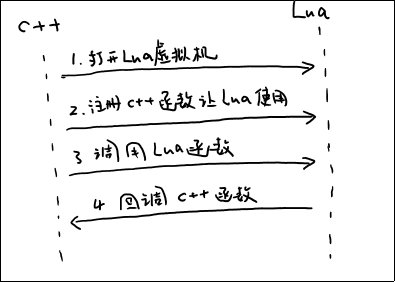 C++
Lua
1. 打开Lua虚拟机
2. 注册C++函数让Lua使用
3 调用Lua函数
4 回调C++函数